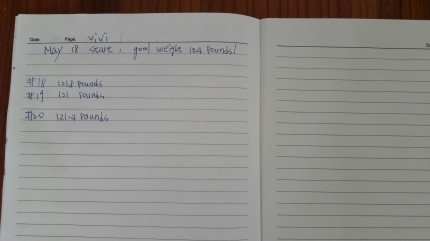 Date. Page. vivi
May 18 start, goal weight 104 pounds!
#18 121.8 pounds
#19 121 pounds
#20 121.4 pounds